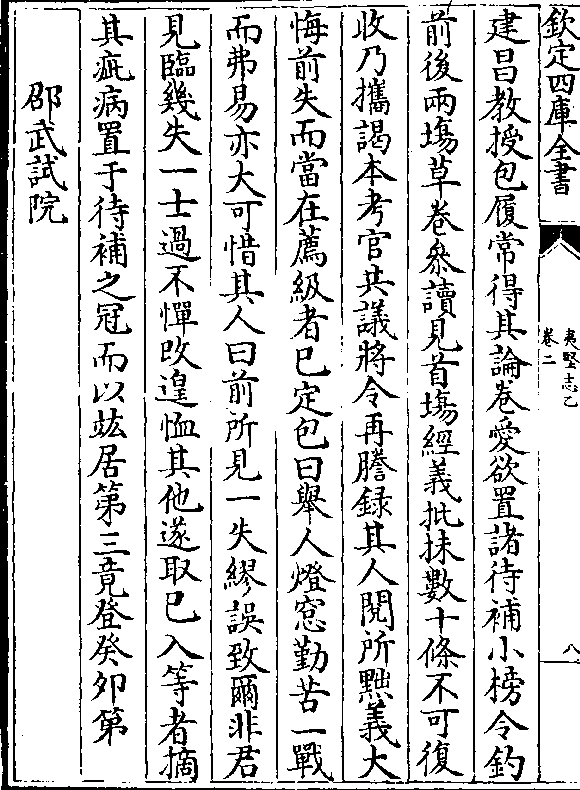 欽定四庫全書
夷堅志乙
卷二
八
建昌教授包履常得其論卷愛欲置諸待補小榜令鈞
前後兩塲草卷叅讀見首塲經義抵抹數十條不可復
收乃攜謁本考官共議將令再謄録其人閱所黜義大
悔前失而當在薦級者已定包曰舉人燈窓勤苦一戰
而弗易亦大可惜其人曰前所見一失繆誤致爾非君
見臨幾失一士過不憚改遑恤其他遂取已入等者摘
其疵病置于待補之冠而以竑居第三竟登癸夘第
邵武試院